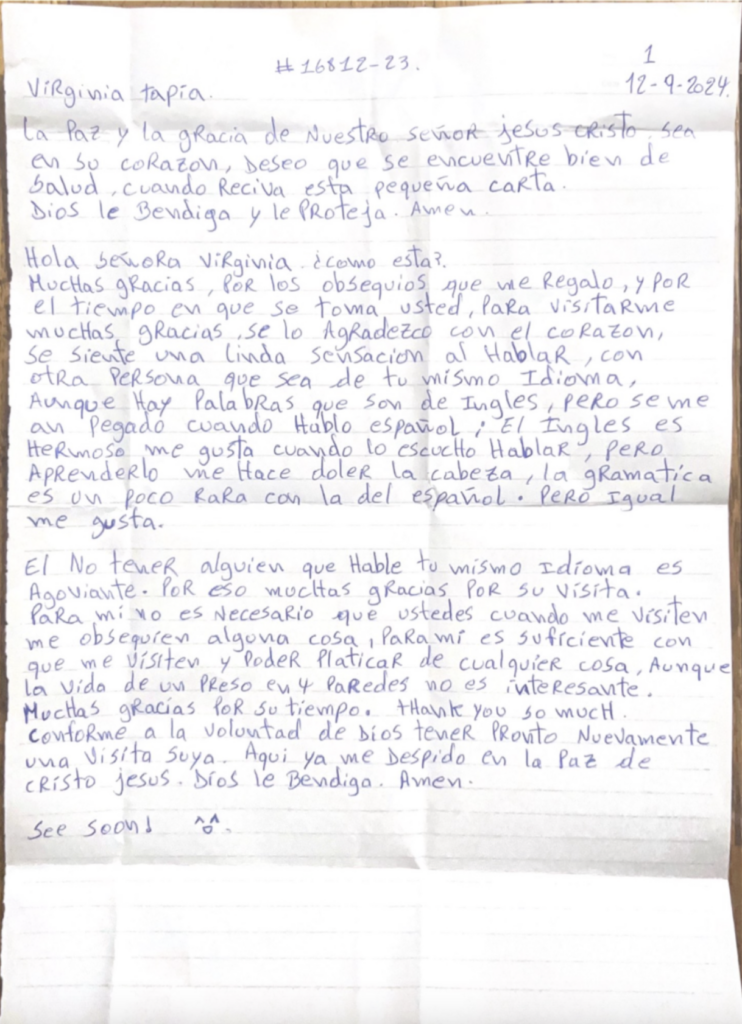 #16812-23.
1
12-9-2024.
Virginia tapia.
La Paz y la gracia de Nuestro señor jesus cristo sea
en su corazon, Deseo que se encuentre bien de
Salud, cuando Reciva esta pequeña carta.
Dios le Bendiga y le Proteja. Amen.
Hola señora Virginia. ¿como esta?.
Muchas gracias, por los obsequios que me Regalo, y por
el tiempo en que se toma usted, Para visitarme
muchas gracias, se lo Agradezco con el corazon,
se siente una linda sensacion al Hablar, con
otra Persona que sea de tu mismo Idioma,
Aunque Hay Palabras que son de Ingles, pero se me
an pegado cuando Hablo español; El Ingles es
Hermoso me gusta cuando lo escucho Hablar, pero
Aprenderlo me Hace doler la cabeza, la gramatica
es un poco Rara con la del español. Pero Igual
me gusta.
El No tener alguien que Hable tu mismo Idioma es
Agoviante. Por eso muchas gracias Por su visita.
Para mi no es Necesario que ustedes cuando me visiten
me obsequien alguna cosa, Para mi es suficiente con
que me visiten y Poder Platicar de cualquier cosa, Aunque
la vida de un Preso en 4 Paredes no es interesante.
Muchas gracias Por su tiempo. thank you so much.
conforme a la voluntad de Dios tener Pronto Nuevamente
una visita suya. Aqui ya me Despido en la Paz de
cristo jesus. Dios le Bendiga. Amen.
See soon! ^o^.